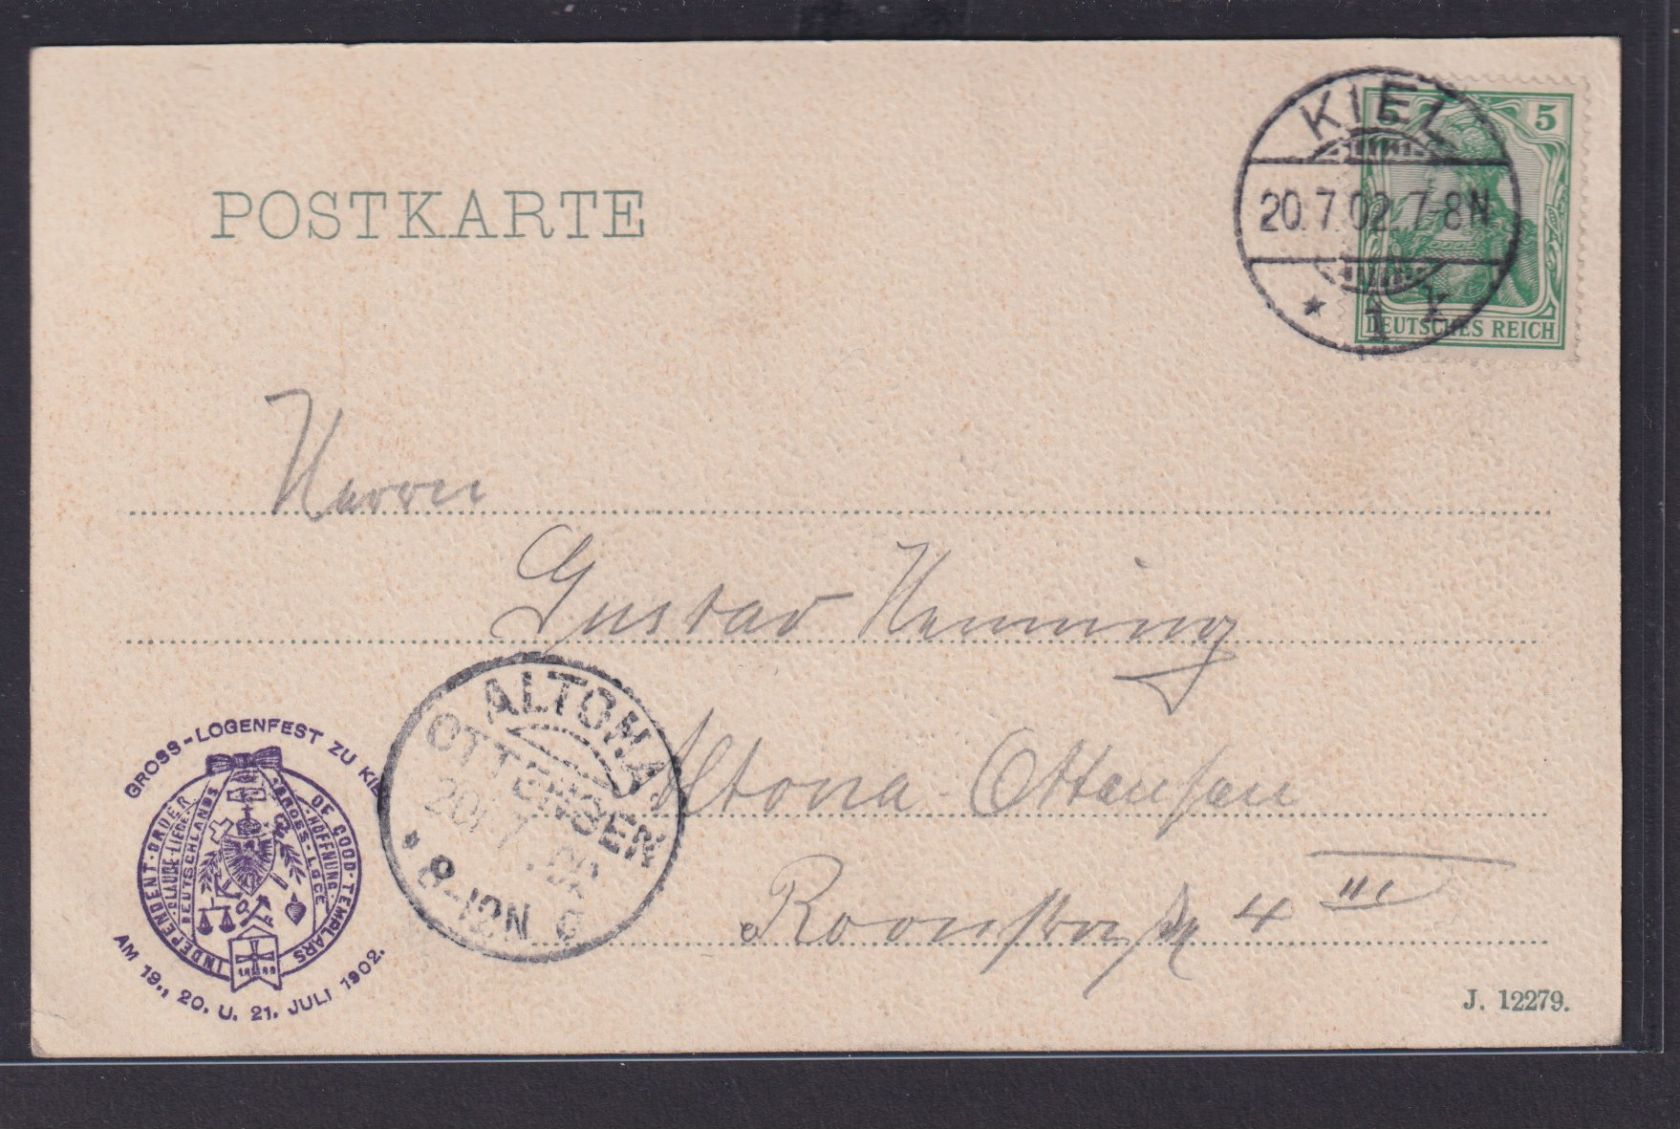 POSTKARTE
KIEL
20.7.02.7-8N
* 1 k
5 5
DEUTSCHES REICH
Herrn
Gustav Henning
Altona-Ottensen
Roonstraße 4 III
ALTONA
OTTENSEN
8-12N
GROSS-LOGENFEST ZU KIEL
INDEPENDENT-ORDER OF GOOD-TEMPLARS
GLAUBE-LIEBE HOFFNUNG
DEUTSCHLANDS GROSS-LOGE
AM 19., 20. U. 21. JULI 1902.
J. 12279.